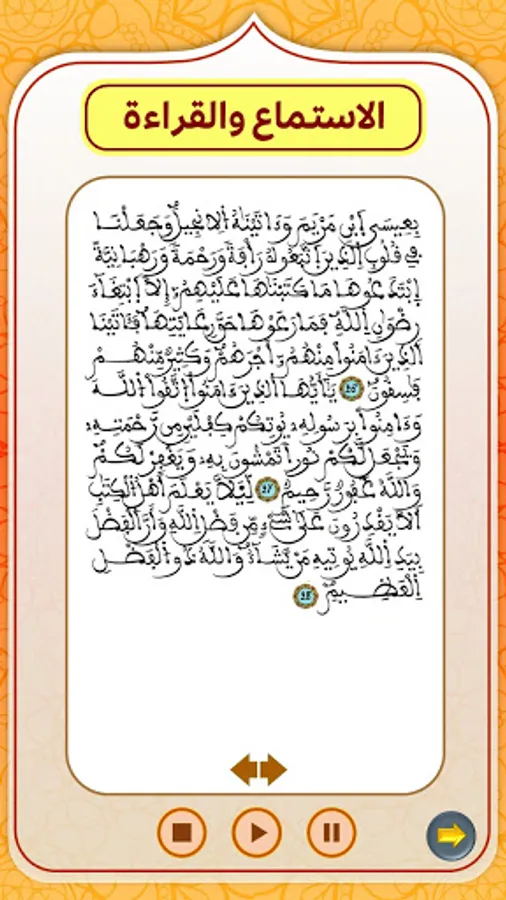 الاستماع والقراءة
بِعِيسَى اَبْنِ مَرْيَمَ وَءَاتَيْنَٰهُ اُلِانجِيلَ وَجَعَلْنَا
فِي قُلُوبِ اِلذِينَ اَتَّبَعُوهُ رَأْفَةً وَرَحْمَةً وَرَهْبَانِيَّةً
اِبْتَدَعُوهَا مَا كَتَبْنَاهَا عَلَيْهِمُۥٓ إِلَّا اَبْتِغَآءَ
رِضْوَٰنِ اِللَّهِ فَمَا رَعَوْهَا حَقَّ رِعَايَتِهَا فَـَٔاتَيْنَا
اَلذِينَ ءَامَنُواْ مِنْهُمُۥٓ أَجْرَهُمْ وَكَثِيرٌ مِّنْهُمْ
فَٰسِقُونَ 26 يَٰٓأَيُّهَا اَلذِينَ ءَامَنُواْ اُتَّقُواْ اُللَّهَ
وَءَامِنُواْ بِرَسُولِهِۦ يُوتِكُمْ كِفْلَيْنِ مِن رَّحْمَتِهِۦ
وَيَجْعَل لَّكُمْ نُوراً تَمْشُونَ بِهِۦ وَيَغْفِرْ لَكُمْ
وَاللَّهُ غَفُورٌ رَّحِيمٌ 27 لِّيَلَّا يَعْلَمَ أَهْلُ اُلْكِتَٰبِ
أَلَّا يَقْدِرُونَ عَلَىٰ شَيْءٍ مِّن فَضْلِ اِللَّهِ وَأَنَّ اَلْفَضْلَ
بِيَدِ اِللَّهِ يُوتِيهِ مَنْ يَّشَآءُ وَاللَّهُ ذُو اُلْفَضْلِ
اِلْعَظِيمِ 28